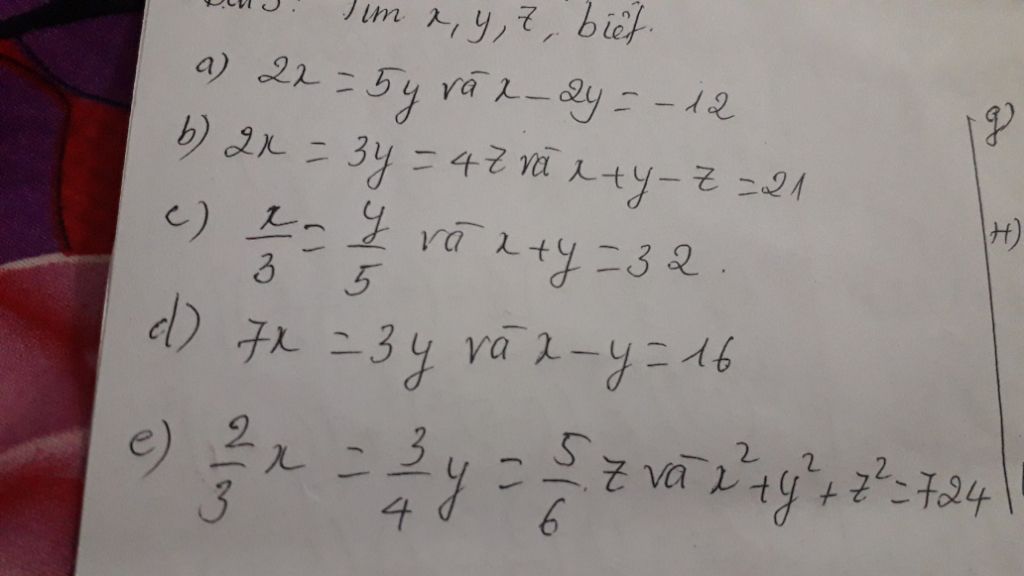 Tìm x, y, z, biết.
a) 2x = 5y và x - 2y = -12
b) 2x = 3y = 4z và x + y - z = 21
c) x/3 = y/5 và x + y = 32.
d) 7x = 3y và x - y = 16
e) 2/3 x = 3/4 y = 5/6 . z và x² + y² + z² = 724
g)
H)